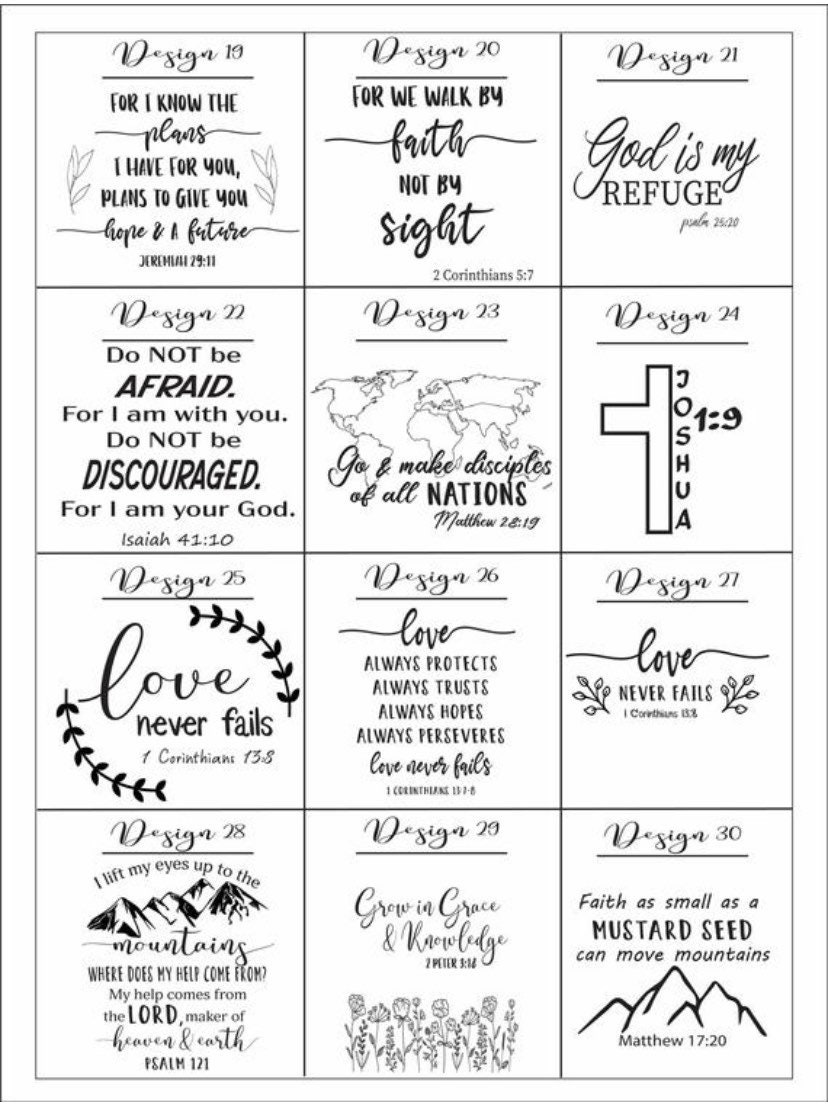 Design 19
FOR I KNOW THE
plans
I HAVE FOR YOU,
PLANS TO GIVE YOU
hope & A future
JEREMIAH 29:11
Design 20
FOR WE WALK BY
faith
NOT BY
sight
2 Corinthians 5:7
Design 21
God is my
REFUGE
psalm 25:20
Design 22
Do NOT be
AFRAID.
For I am with you.
Do NOT be
DISCOURAGED.
For I am your God.
Isaiah 41:10
Design 23
Go & make disciples
of all NATIONS
Matthew 28:19
Design 24
JOSHUA
1:9
Design 25
love
never fails
1 Corinthians 13:8
Design 26
love
ALWAYS PROTECTS
ALWAYS TRUSTS
ALWAYS HOPES
ALWAYS PERSEVERES
love never fails
1 CORINTHIANS 13:7-8
Design 27
love
NEVER FAILS
1 Corinthians 13:8
Design 28
I lift my eyes up to the
mountains
WHERE DOES MY HELP COME FROM?
My help comes from
the LORD, maker of
heaven & earth
PSALM 121
Design 29
Grow in Grace
& Knowledge
2 PETER 3:18
Design 30
Faith as small as a
MUSTARD SEED
can move mountains
Matthew 17:20